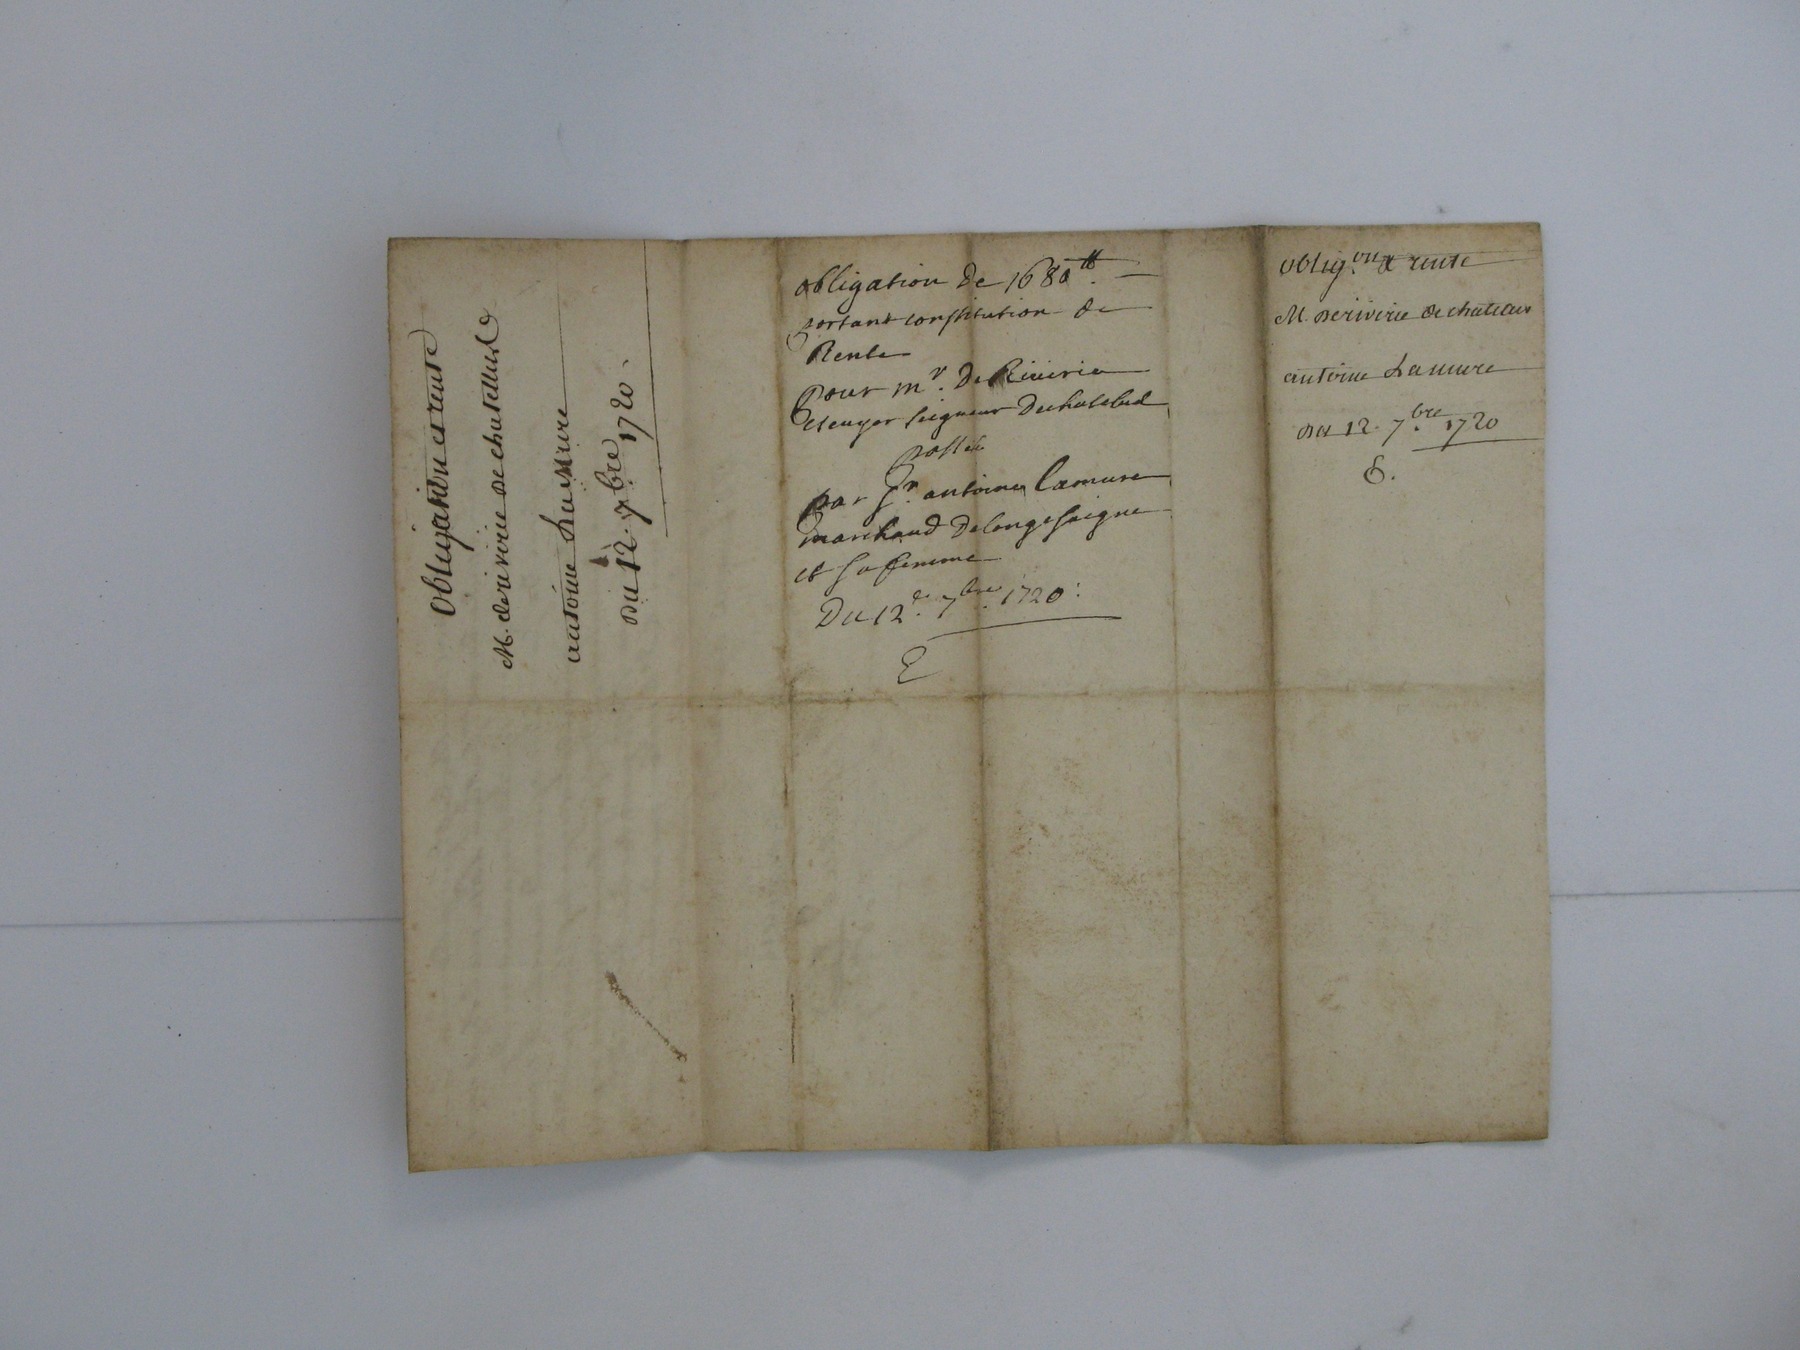 Obligation et rente
M. de rivirie de chatellus
antoine Lamure
Du 12. 7bre 1720.
obligation de 1680tt.
portant constitution de
Rente
pour mr. De Riuirie
escuyer seigneur Dechatelud
passée
par Sr. antoine Lamure
marchand delongessaigne
et sa femme
Du 12e. 7bre. 1720.
E
oblig.on & rente
M. de rivirie de chatelus
antoine Lamure
Du 12. 7.bre 1720
E.